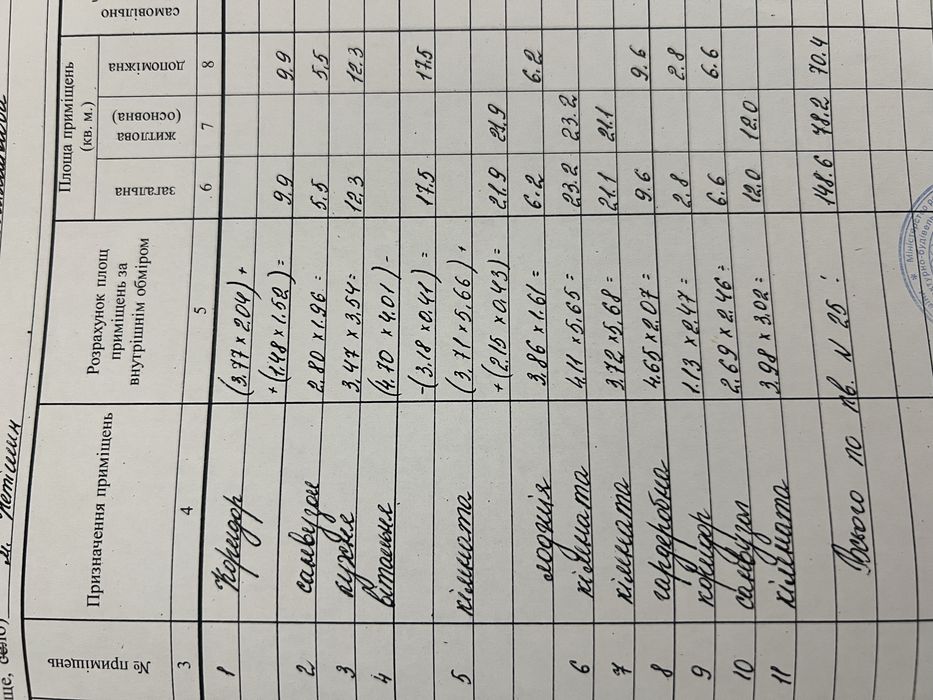 ще, село) м. Нетішин
№ приміщень Призначення приміщень Розрахунок площ приміщень за внутрішнім обміром Площа приміщень (кв. м.)
загальна житлова (основна) допоміжна самовільно
3 4 5 6 7 8
1 Коридор (3.77 x 2.04) +
+ (1.48 x 1.52) = 9.9 9.9
2 санвузол 2.80 x 1.96 = 5.5 5.5
3 кухня 3.47 x 3.54 = 12.3 12.3
4 вітальня (4.70 x 4.01) -
-(3.18 x 0.41) = 17.5 17.5
5 кімната (3.71 x 5.66) +
+ (2.15 x 0.43) = 21.9 21.9
лоджія 3.86 x 1.61 = 6.2 6.2
6 кімната 4.11 x 5.65 = 23.2 23.2
7 кімната 3.72 x 5.68 = 21.1 21.1
8 гардеробна 4.65 x 2.07 = 9.6 9.6
9 коридор 1.13 x 2.47 = 2.8 2.8
10 санвузол 2.69 x 2.46 = 6.6 6.6
11 кімната 3.98 x 3.02 = 12.0 12.0
Всього по кв. N 25 : 148.6 78.2 70.4